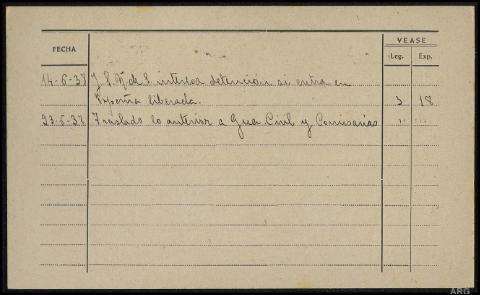 VEASE
FECHA
Leg. Exp.
14-6-38 J. S. N. de S. interesa detención si entra en
España liberada. 3 18
23-6-38 Traslado lo anterior a Gua Civil y Comisarías " "
ARG